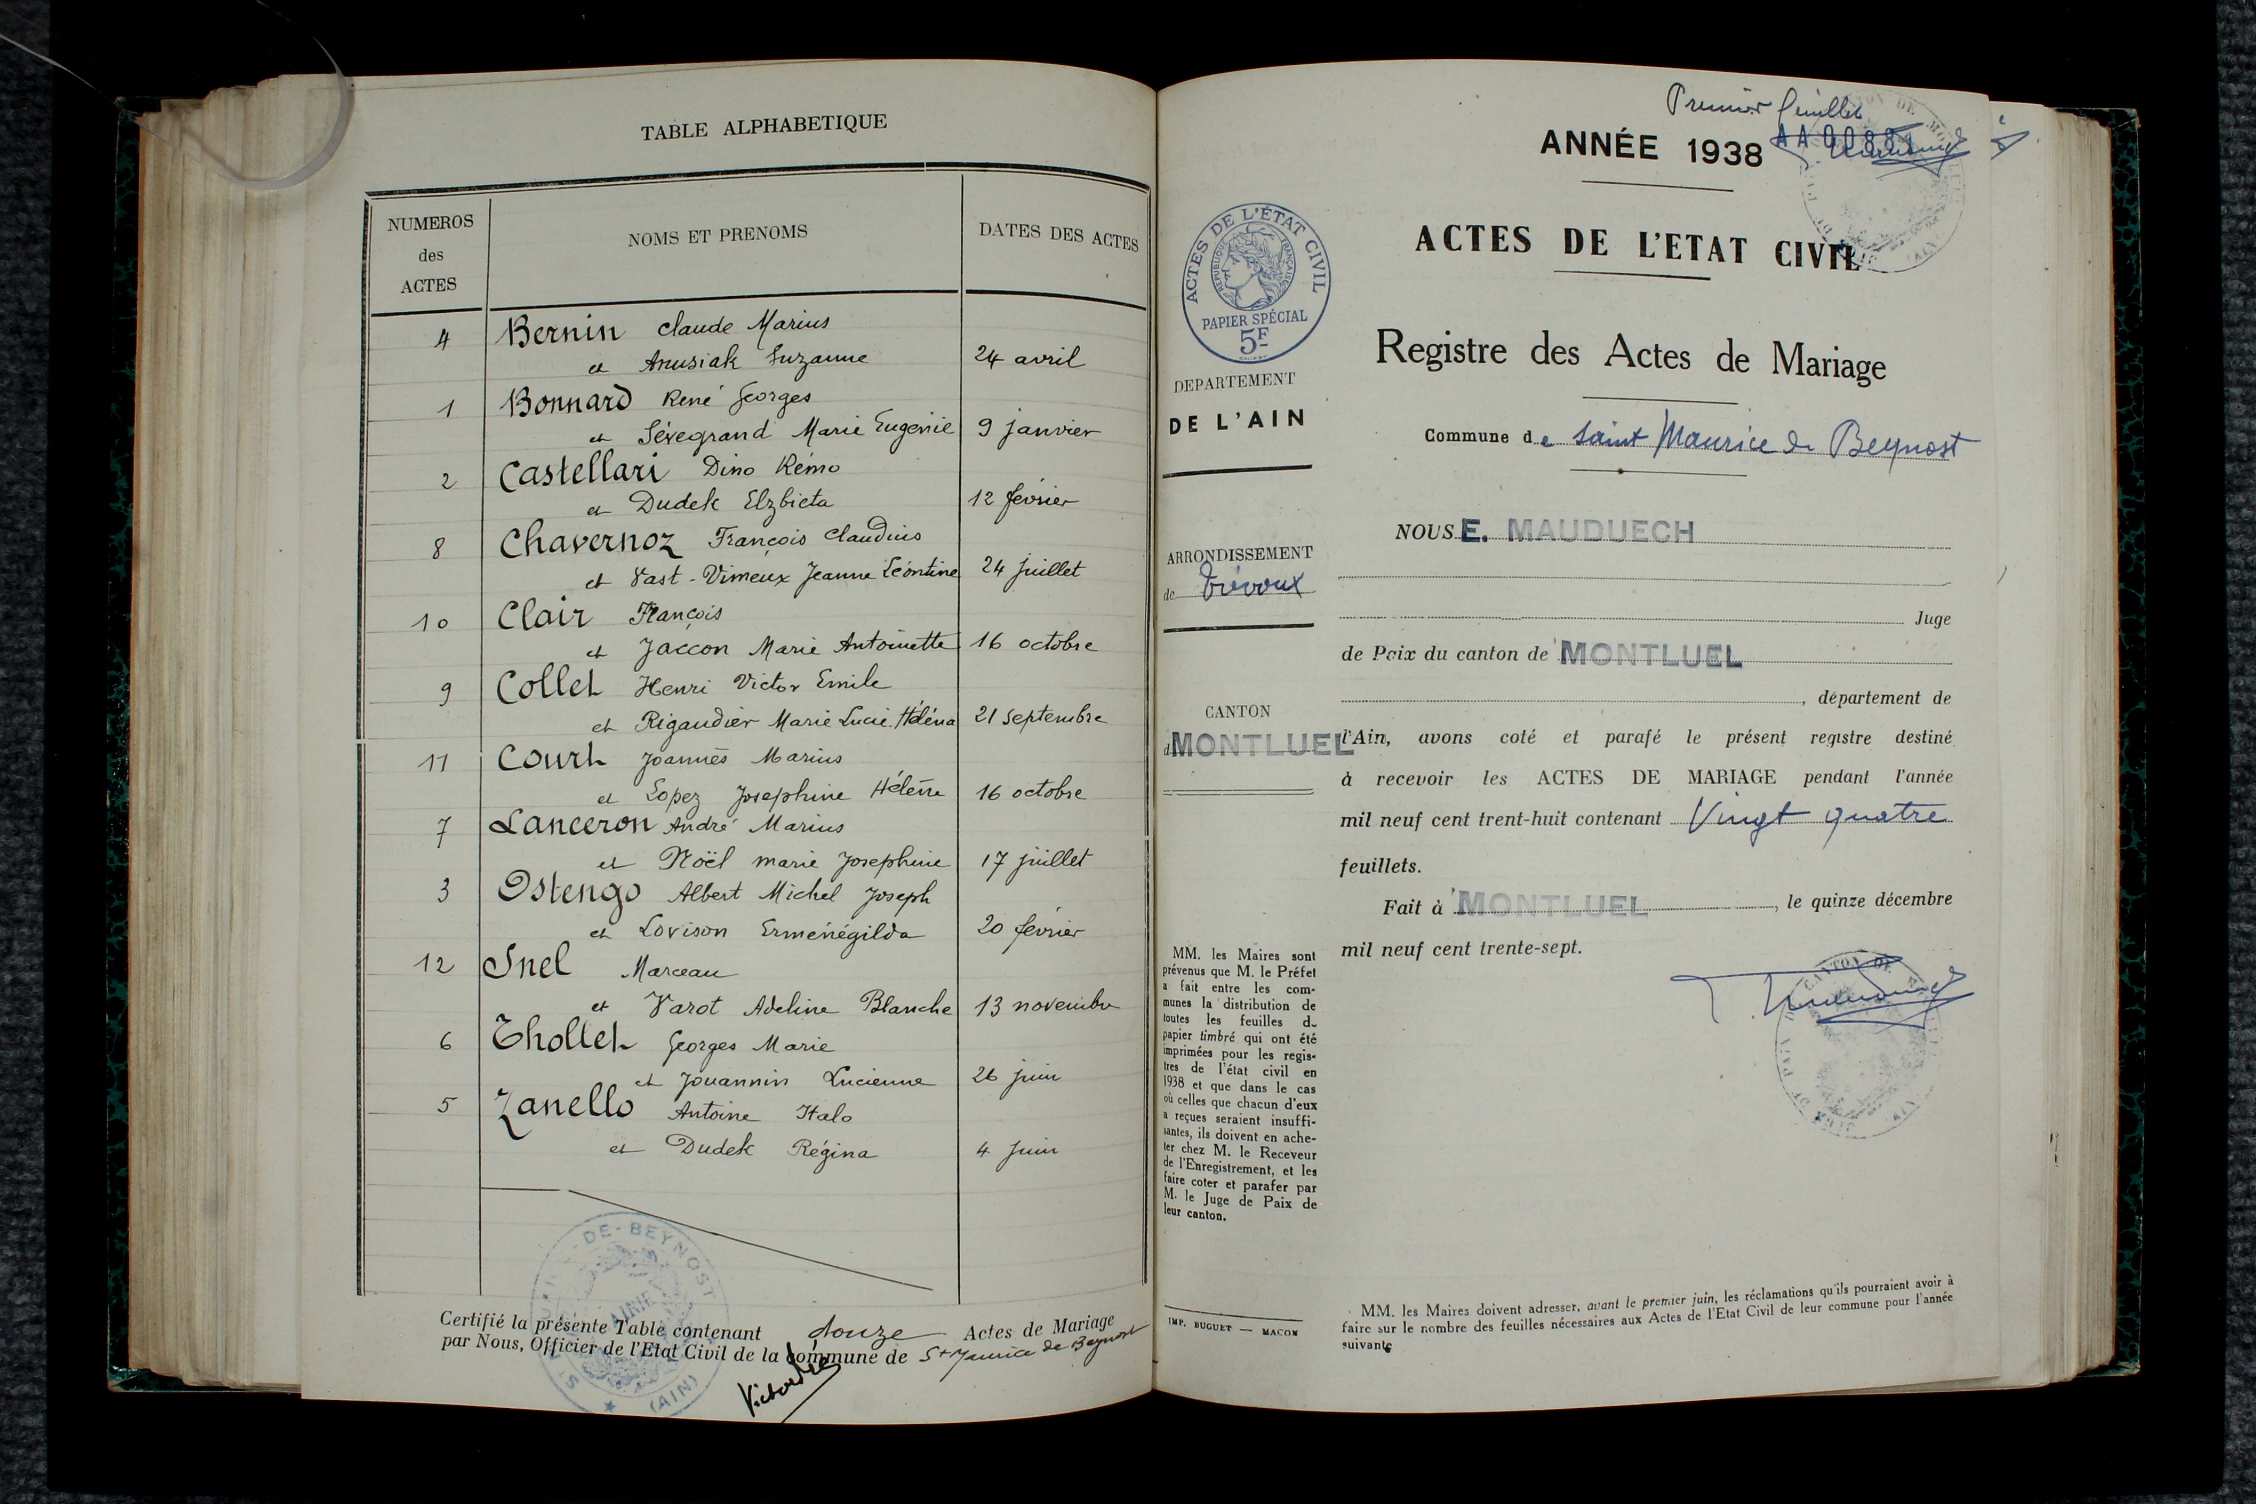 TABLE ALPHABETIQUE
NUMEROS
des
ACTES
NOMS ET PRENOMS
DATES DES ACTES
4 Bernin Claude Marius
et Anusiak Suzanne 24 avril
1 Bonnard René Georges
et Sévegrand Marie Eugénie 9 janvier
2 Castellari Dino Rémo
et Dudek Elzbieta 12 février
8 Chavernoz François Claudius
et Vast-Vimeux Jeanne Léontine 24 juillet
10 Clair François
et Jaccon Marie Antoinette 16 octobre
9 Collet Henri Victor Emile
et Rigaudier Marie Lucie Héléna 21 septembre
11 Court Joannès Marius
et Lopez Josephine Hélène 16 octobre
7 Lanceron André Marius
et Noël marie Josephine 17 juillet
3 Ostengo Albert Michel Joseph
et Lovison Erménégilda 20 février
12 Snel Marceau
et Varot Adeline Blanche 13 novembre
6 Thollet Georges Marie
et Jouannin Lucienne 26 juin
5 Zanello Antoine Italo
et Dudek Régina 4 juin
DE-BEYNOST
MAIRIE
(AIN)
Certifié la présente Table contenant douze Actes de Mariage
par Nous, Officier de l'Etat Civil de la commune de St Maurice de Beynost
Premier feuillet
ANNÉE 1938
ACTES DE L'ETAT CIVIL
Registre des Actes de Mariage
Commune de Saint Maurice de Beynost
ACTES DE L'ÉTAT CIVIL
RÉPUBLIQUE FRANÇAISE
PAPIER SPÉCIAL
5F
DEPARTEMENT
DE L'AIN
ARRONDISSEMENT
de Trévoux
CANTON
d MONTLUEL
MM. les Maires sont
prévenus que M. le Préfet
a fait entre les com-
munes la distribution de
toutes les feuilles du
papier timbré qui ont été
imprimées pour les regis-
tres de l'état civil en
1938 et que dans le cas
où celles que chacun d'eux
a reçues seraient insuffi-
santes, ils doivent en ache-
ter chez M. le Receveur
de l'Enregistrement, et les
faire coter et parafer par
M. le Juge de Paix de
leur canton.
IMP. BUGUET — MACON
NOUS E. MAUDUECH
Juge
de Paix du canton de MONTLUEL
, département de
l'Ain, avons coté et parafé le présent registre destiné
à recevoir les ACTES DE MARIAGE pendant l'année
mil neuf cent trent-huit contenant Vingt quatre
feuillets.
Fait à MONTLUEL, le quinze décembre
mil neuf cent trente-sept.
CANTON DE
MM. les Maires doivent adresser, avant le premier juin, les réclamations qu'ils pourraient avoir à
faire sur le nombre des feuilles nécessaires aux Actes de l'Etat Civil de leur commune pour l'année
suivante